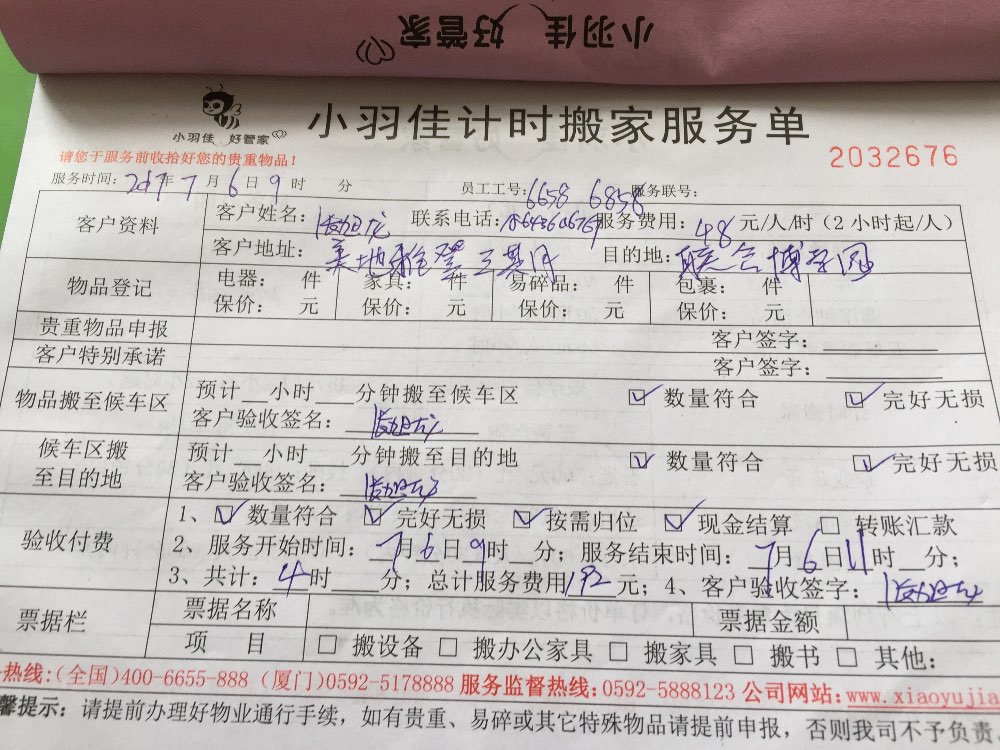 小羽佳 好管家
小羽佳 好管家
小羽佳计时搬家服务单
请您于服务前收拾好您的贵重物品！
2032676
服务时间：2017年7月6日9时 分 员工工号：6658 6858 服务联号：
客户资料
客户姓名： 联系电话： 服务费用：48元/人/时（2小时起/人）
客户地址：美地雅登 目的地：联合博学园
物品登记
电器： 件 家具： 件 易碎品： 件 包裹： 件
保价： 元 保价： 元 保价： 元 保价： 元
贵重物品申报 客户签字：
客户特别承诺 客户签字：
物品搬至候车区
预计 小时 分钟搬至候车区 数量符合 完好无损
客户验收签名：
候车区搬至目的地
预计 小时 分钟搬至目的地 数量符合 完好无损
客户验收签名：
验收付费
1、数量符合 完好无损 按需归位 现金结算 转账汇款
2、服务开始时间：7月6日9时 分；服务结束时间：7月6日11时 分；
3、共计：4时 分；总计服务费用192元；4、客户验收签字：
票据栏
票据名称 票据金额
项 目 搬设备 搬办公家具 搬家具 搬书 其他：
热线：(全国)400-6655-888 (厦门)0592-5178888 服务监督热线：0592-5888123 公司网站：www.xiaoyujia
馨提示：请提前办理好物业通行手续，如有贵重、易碎或其它特殊物品请提前申报，否则我司不予负责